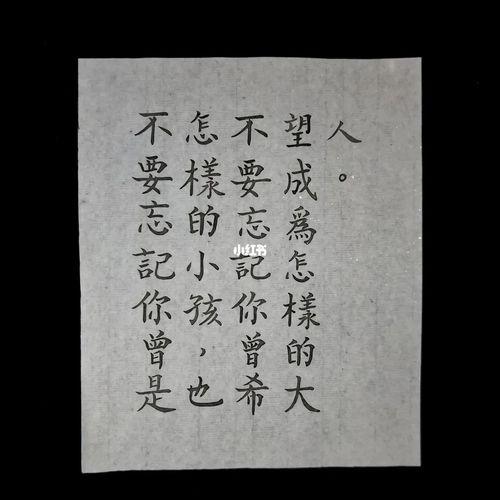 不要忘記你曾是
怎樣的小孩，也
不要忘記你曾希
望成爲怎樣的大
人。
小红书